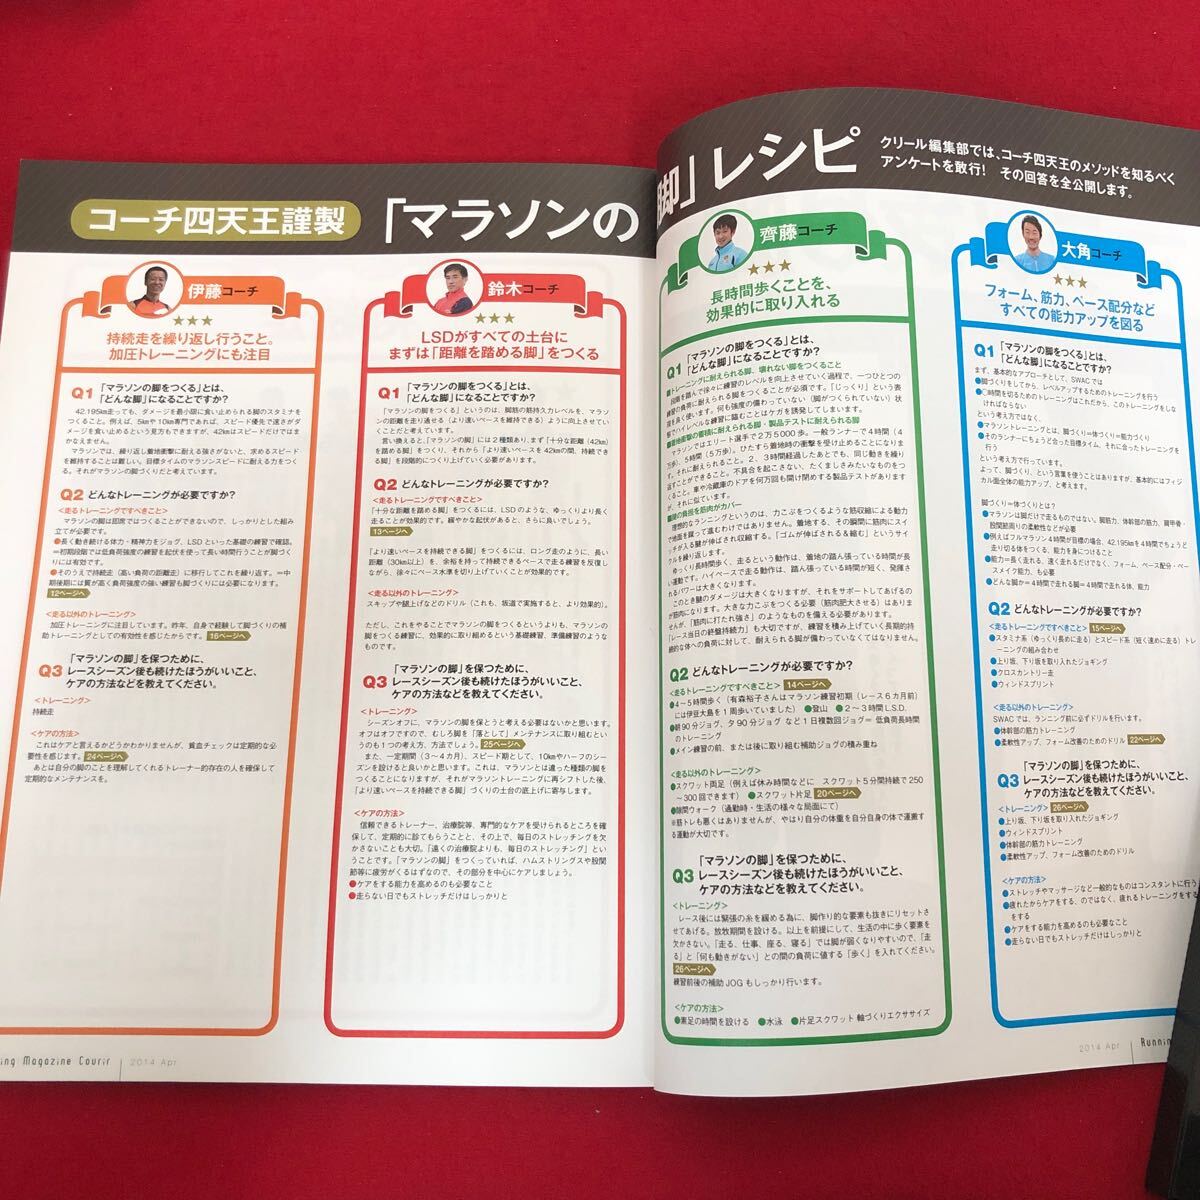 コーチ四天王謹製
「マラソンの
脚」レシピ
クリール編集部では、コーチ四天王のメソッドを知るべく
アンケートを敢行! その回答を全公開します。
伊藤コーチ
★★★
持続走を繰り返し行うこと。
加圧トレーニングにも注目
Q1 「マラソンの脚をつくる」とは、
「どんな脚」になることですか?
42.195km走っても、ダメージを最小限に食い止められる脚のスタミナを
つくること。例えば、5kmや10km専門であれば、スピード優先で速さがダ
メージを食い止めるという見方もできますが、42kmはスピードだけではま
かなえません。
マラソンでは、繰り返し着地衝撃に耐える強さがないと、求めるスピード
を維持することは難しい。目標タイムのマラソンスピードに耐える力をつく
る。それがマラソンの脚づくりだと考えています。
Q2 どんなトレーニングが必要ですか?
<走るトレーニングですべきこと>
マラソンの脚は即席ではつくることができないので、しっかりとした組み
立てが必要です。
●長く動き続ける体力・精神力をジョグ、LSDといった基礎の練習で確認。
=初期段階では低負荷強度の練習を起伏を使って長い時間行うことが脚づく
りには有効です。
●そのうえで持続走(高い負荷の距離走)に移行してこれを繰り返す。=中
後期には質が高く負荷強度の強い練習も脚づくりには必要になります。
12ページへ
<走る以外のトレーニング>
加圧トレーニングに注目しています。昨年、自身で経験して脚づくりの補
助トレーニングとしての有効性を感じたからです。 16ページへ
Q3 「マラソンの脚」を保つために、
レースシーズン後も続けたほうがいいこと、
ケアの方法などを教えてください。
<トレーニング>
持続走
<ケアの方法>
これはケアと言えるかどうかわかりませんが、貧血チェックは定期的な必
要性を感じます。 24ページへ
あとは自分の脚のことを理解してくれるトレーナー的存在の人を確保して
定期的なメンテナンスを。
鈴木コーチ
★★★
LSDがすべての土台に
まずは「距離を踏める脚」をつくる
Q1 「マラソンの脚をつくる」とは、
「どんな脚」になることですか?
「マラソンの脚をつくる」というのは、脚筋の筋持久力レベルを、マラソ
ンの距離を走り通せる(より速いペースを維持できる)ように向上させてい
くことだと考えています。
言い換えると、「マラソンの脚」には2種類あり、まず「十分な距離(42km)
を踏める脚」をつくり、それから「より速いペースを42kmの間、持続でき
る脚」を段階的につくり上げていく必要があります。
Q2 どんなトレーニングが必要ですか?
<走るトレーニングですべきこと>
「十分な距離を踏める脚」をつくるには、LSDのような、ゆっくりより長く
走ることが効果的です。緩やかな起伏があると、さらに良いでしょう。
13ページへ
「より速いペースを持続できる脚」をつくるには、ロング走のように、長い
距離(30km以上)を、余裕を持って持続できるペースで走る練習を反復し
ながら、徐々にペース水準を切り上げていくことが効果的です。
<走る以外のトレーニング>
スキップや腿上げなどのドリル(これも、坂道で実施すると、より効果的)。
ただし、これをやることでマラソンの脚をつくるというよりも、マラソンの
脚をつくる練習に、効果的に取り組めるという基礎練習、準備練習のような
ものです。
Q3 「マラソンの脚」を保つために、
レースシーズン後も続けたほうがいいこと、
ケアの方法などを教えてください。
<トレーニング>
シーズンオフに、マラソンの脚を保とうと考える必要はないかと思います。
オフはオフですので、むしろ脚を「落として」メンテナンスに取り組むとい
うのも1つの考え方、方法でしょう。 25ページへ
また、一定期間(3〜4カ月)、スピード期として、10kmやハーフのシー
ズンを設けると良いかと思います。これは、マラソンとは違った種類の脚を
つくることになりますが、それがマラソントレーニングに再シフトした後、
「より速いペースを持続できる脚」づくりの土台の底上げに寄与します。
<ケアの方法>
信頼できるトレーナー、治療院等、専門的なケアを受けられるところを確
保して、定期的に診てもらうことと、その上で、毎日のストレッチングを欠
かさないことも大切。「遠くの治療院よりも、毎日のストレッチング」とい
うことです。「マラソンの脚」をつくっていれば、ハムストリングスや股関
節等に疲労がくるはずなので、その部分を中心にケアしましょう。
●ケアをする能力を高めるのも必要なこと
●走らない日でもストレッチだけはしっかりと
齊藤コーチ
★★★
長時間歩くことを、
効果的に取り入れる
Q1 「マラソンの脚をつくる」とは、
「どんな脚」になることですか?
■トレーニングに耐えられる脚、壊れない脚をつくること
段階を踏んで徐々に練習のレベルを向上させていく過程で、一つひとつの
練習の負荷に耐えられる脚をつくることが必須です。「じっくり」という表
現を良く使います。何も強度の備わっていない(脚がつくられていない)状
態でハイレベルな練習に臨むことはケガを誘発してしまいます。
■着地衝撃の蓄積に耐えられる脚・製品テストに耐えられる脚
マラソンではエリート選手で2万5000歩。一般ランナーで4時間(4
万歩)、5時間(5万歩)。ひたすら着地時の衝撃を受け止めることになりま
す。それに耐えられること。2、3時間経過したあとでも、同じ動きを繰り
返すことができること。不具合を起こさない、たくましさみたいなものをつ
くること。車や冷蔵庫のドアを何万回も開け閉めする製品テストがあります
が、それに似ています。
■腱の負担を筋肉がカバー
理想的なランニングというのは、力こぶをつくるような筋収縮による動力
で地面を蹴って進むわけではありません。着地する、その瞬間に筋肉にスイ
ッチが入る腱が伸ばされ収縮する。「ゴムが伸ばされる&縮む」というサイ
クルを繰り返します。
ゆっくり長時間歩く、走るという動作は、着地の踏ん張っている時間が長
い運動です。ハイペースで走る動作は、踏ん張っている時間が短く、発揮さ
れるパワーは大きくなります。
このとき腱のダメージは大きくなりますが、それをサポートしてあげるの
が筋肉になります。大きな力こぶをつくる必要(筋肉肥大させる)はありま
せんが、「筋肉に打たれ強さ」のようなものを備える必要があります。
「レース当日の終盤持続力」も大切ですが、練習を積み上げていく長期的持
続的な体への負荷に対して、耐えられる脚が備わっていなくてはなりません。
Q2 どんなトレーニングが必要ですか?
<走るトレーニングですべきこと> 14ページへ
●4〜5時間歩く(有森裕子さんはマラソン練習初期(レース6カ月前)
には伊豆大島を1周歩いていました) ●登山 ●2〜3時間L.S.D.
●朝90分ジョグ、夕90分ジョグ など1日複数回ジョグ= 低負荷長時間
のトレーニング
●メイン練習の前、または後に取り組む補助ジョグの積み重ね
<走る以外のトレーニング>
●スクワット両足(例えば休み時間などに スクワット5分間持続で250
〜300回できます) ●スクワット片足 20ページへ
●隙間ウォーク(通勤時・生活の様々な局面にて)
※筋トレも悪くはありませんが、やはり自分の体重を自分自身の体で運搬す
る運動が大切です。
Q3 「マラソンの脚」を保つために、
レースシーズン後も続けたほうがいいこと、
ケアの方法などを教えてください。
<トレーニング>
レース後には緊張の糸を緩める為に、脚作り的な要素も抜きにリセットさ
せてあげる。放牧期間を設ける。以上を前提にして、生活の中に歩く要素を
欠かさない。「走る、仕事、座る、寝る」では脚が弱くなりやすいので、「走
る」と「何も動きがない」との間の負荷に値する「歩く」を入れてください。
26ページへ
練習前後の補助JOGもしっかり行います。
<ケアの方法>
●素足の時間を設ける ●水泳 ●片足スクワット 軸づくりエクササイズ
大角コーチ
★★★
フォーム、筋力、ペース配分など
すべての能力アップを図る
Q1 「マラソンの脚をつくる」とは、
「どんな脚」になることですか?
まず、基本的なアプローチとして、SWACでは
●脚づくりをしてから、レベルアップするためのトレーニングを行う
●○時間を切るためのトレーニングはこれだから、このトレーニングをしな
ければならない
という考え方ではなく、
●マラソントレーニングとは、脚づくり=体づくり=能力づくり
●そのランナーにちょうど合った目標タイム、それに合ったトレーニングを
行う
という考え方で行っています。
よって、脚づくり、という言葉を使うことはありますが、基本的にはフィジ
カル面全体の能力アップ、と考えます。
脚づくり=体づくりとは?
●マラソンは脚だけで走るものではない。脚筋力、体幹部の筋力、肩甲骨・
股関節周りの柔軟性などが必要
●例えばフルマラソン4時間が目標の場合、42.195kmを4時間でちょうど
走り切る体をつくる、能力を身につけること
●能力=長く走れる、速く走れるだけでなく、フォーム、ペース配分・ペー
スメイク能力、も必要
●どんな脚か=4時間で走れる脚=4時間で走れる体、能力
Q2 どんなトレーニングが必要ですか?
<走るトレーニングですべきこと> 15ページへ
●スタミナ系(ゆっくり長めに走る)とスピード系(短く速めに走る)トレ
ーニングの組み合わせ
●上り坂、下り坂を取り入れたジョギング
●クロスカントリー走
●ウィンドスプリント
<走る以外のトレーニング>
SWACでは、ランニング前に必ずドリルを行います。
●体幹部の筋力トレーニング
●柔軟性アップ、フォーム改善のためのドリル 22ページへ
Q3 「マラソンの脚」を保つために、
レースシーズン後も続けたほうがいいこと、
ケアの方法などを教えてください。
<トレーニング> 26ページへ
●上り坂、下り坂を取り入れたジョギング
●ウィンドスプリント
●体幹部の筋力トレーニング
●柔軟性アップ、フォーム改善のためのドリル
<ケアの方法>
●ストレッチやマッサージなど一般的なものはコンスタントに行う
●疲れたからケアをする、のではなく、疲れるトレーニングをする
をする
●ケアをする能力を高めるのも必要なこと
●走らない日でもストレッチだけはしっかりと
ing Magazine Courir
2014 Apr
2014 Apr
Runnin